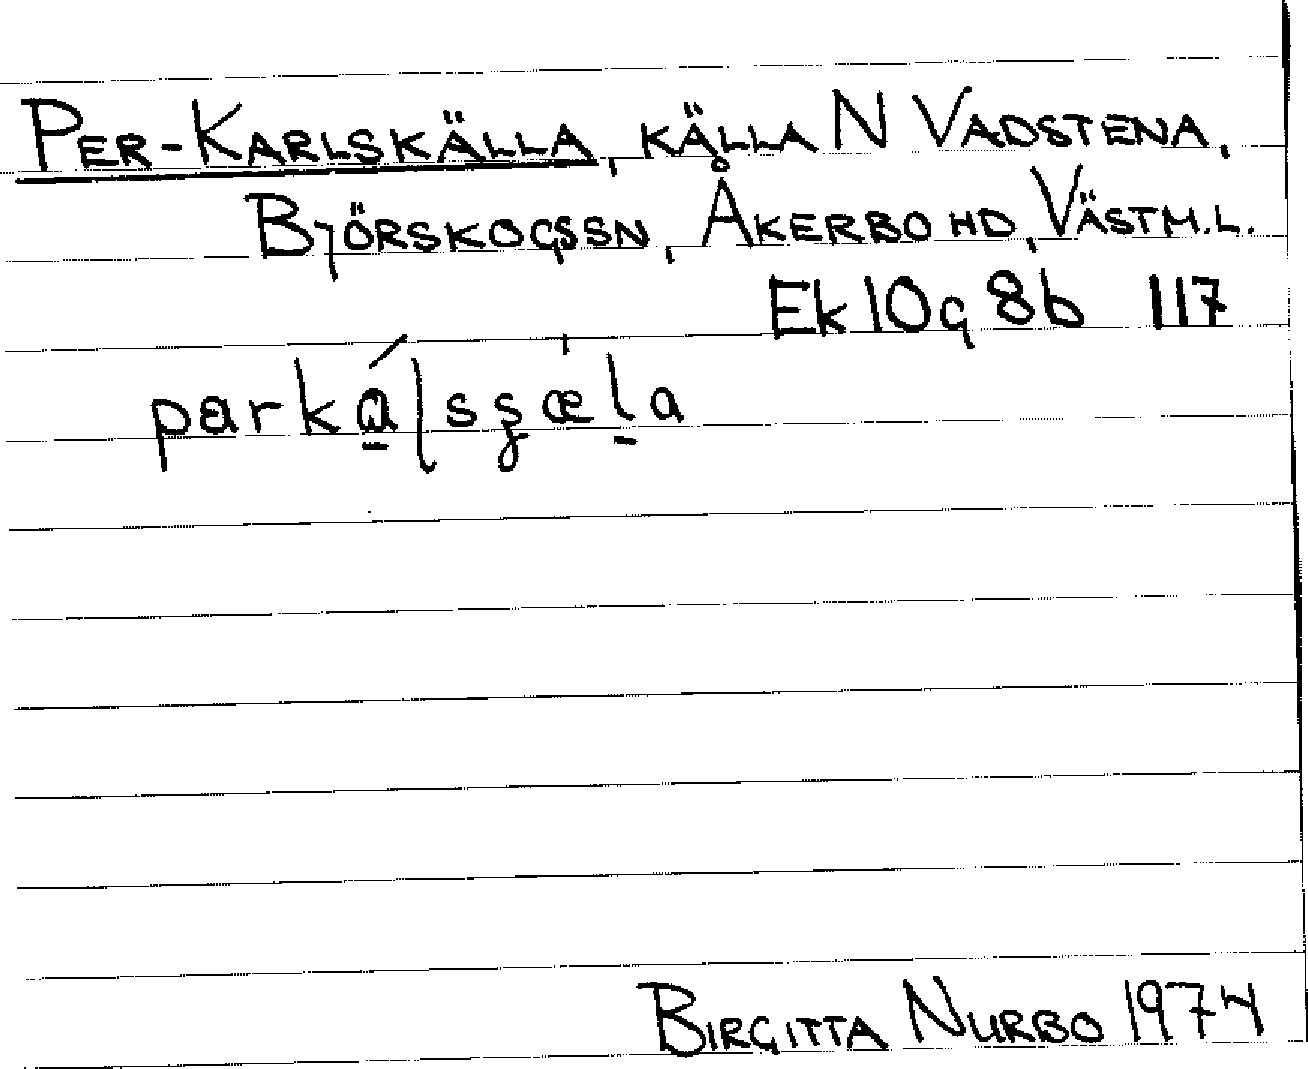 PER-KARLSKÄLLA, KÄLLA N VADSTENA,
BJÖRSKOGSSN, ÅKERBO HD, VÄSTM.L.
Ek 10g 8b 117
parká̱lsʂæḻa
BIRGITTA NURBO 1974